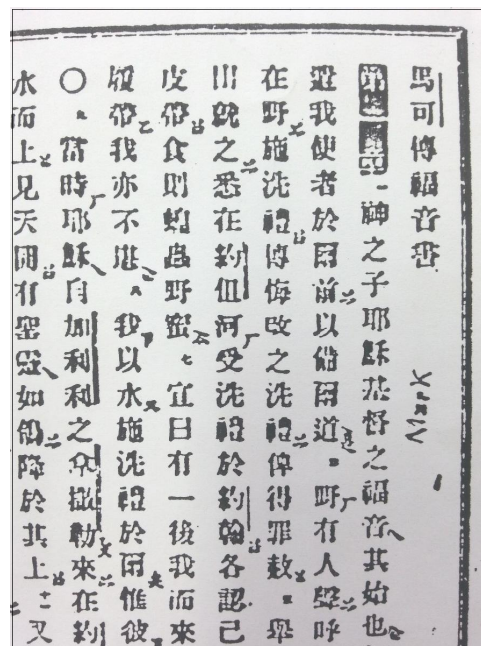 馬可傳福音書
第一章一神之子耶穌基督之福音其始也
遣我使者於爾前以備爾道。野有人聲呼
在野施洗禮傳悔改之洗禮俾得罪赦。舉
出就之悉在約但河受洗禮於約翰各認己
皮帶食則蝗蟲野蜜。七宣曰有一後我而來
履帶我亦不堪。八我以水施洗禮於爾惟彼
〇。九當時耶穌自加利利之拿撒勒來在約
水而上見天開有如鴿降於其上十一又